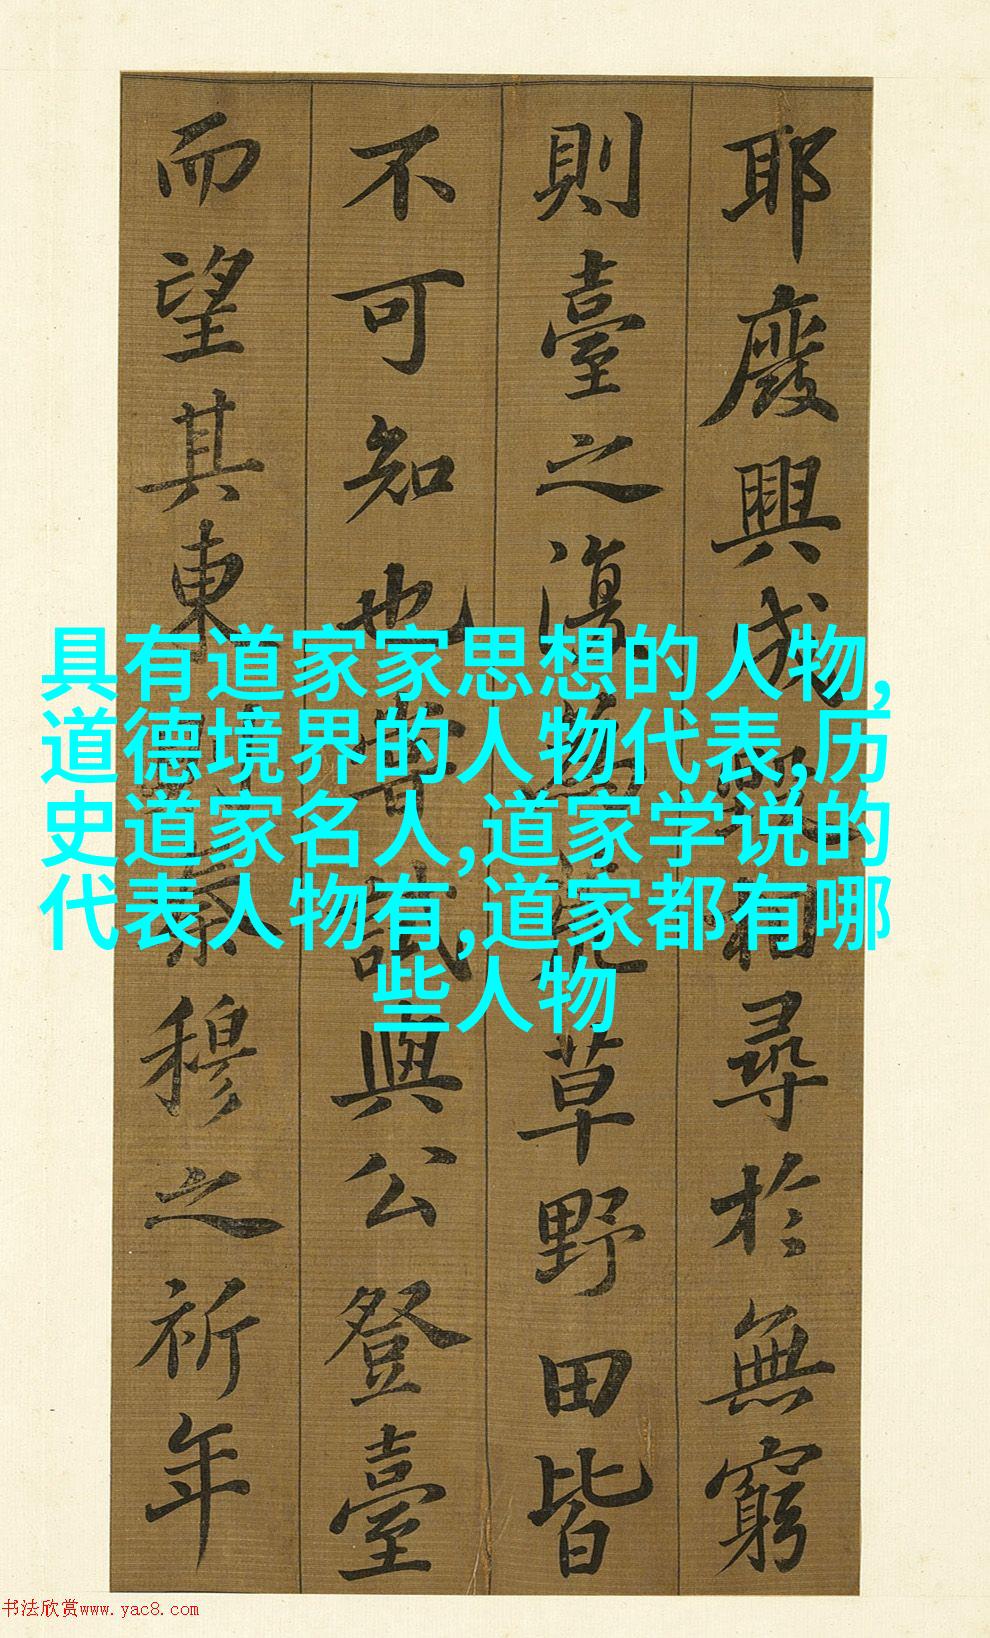 耶廢興成毀相尋於無窮
則臺之復為荒草野田皆
不可知也嘗試與公登臺
而望其東則秦穆之祈年
具有道家家思想的人物,
道德境界的人物代表,历
史道家名人,道家学说的
代表人物有,道家都有哪
些人物
书法欣赏www.yac8.com